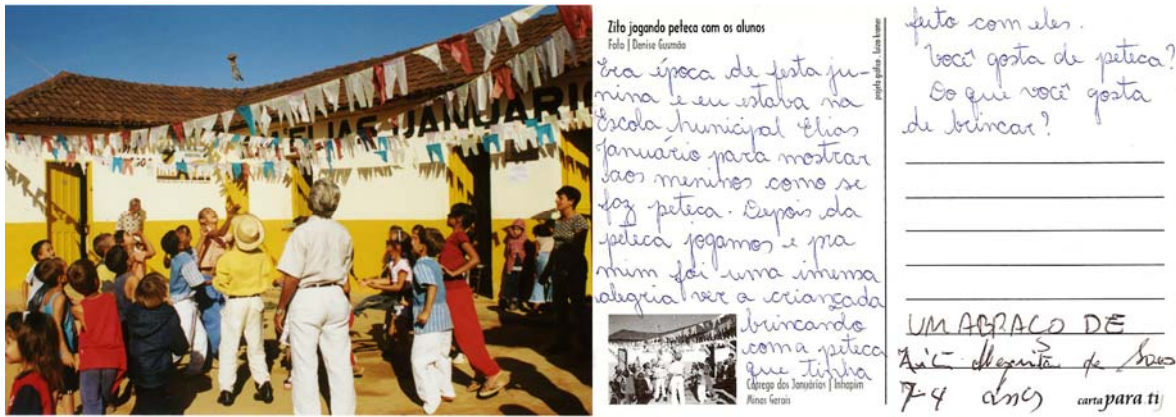 ELIAS JANUÁRIO
Zito jogando peteca com os alunos
Foto | Denise Gusmão
Era época de festa ju-
nina e eu estava na
Escola Municipal Elias
Januário para mostrar
aos meninos como se
faz peteca. Depois da
peteca jogamos e pra
mim foi uma imensa
alegria ver a criançada
brincando
com a peteca
que tinha
Córrego dos Januários | Inhapim
Minas Gerais
projeto gráfico . luiza bramer
feito com eles.
Você gosta de peteca?
Do que você gosta
de brincar?
UM ABRAÇO DE
Zito Mesquita de
74 anos
carta para ti